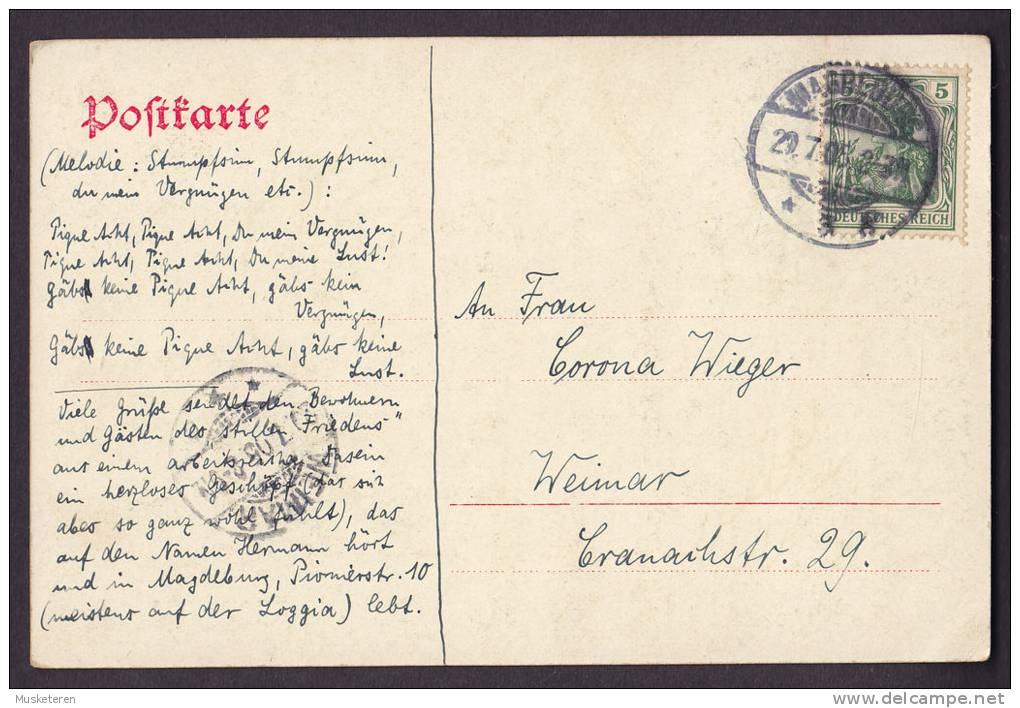 Postkarte
(Melodie: Stumpfsinn, Stumpfsinn,
du mein Vergnügen etc.):
Pique Acht, Pique Acht, Du mein Vergnügen,
Pique Acht, Pique Acht, Du meine Lust!
Gäbs keine Pique Acht, gäbs kein
Vergnügen,
Gäbs keine Pique Acht, gäbs keine
Lust.
Viele Grüße sendet den Bewohnern
und Gästen des stillen Friedens"
aus einem Dasein
ein herzloses Geschöpf (das sich
aber so ganz wohl fühlt), das
auf den Namen Hermann hört
und in Magdeburg, Pionierstr. 10
(meistens auf der Loggia) lebt.
5
DEUTSCHES REICH
An Frau
Corona Wieger
Weimar
Cranachstr. 29.
WEIMAR
Musketeren
www.delcampe.net